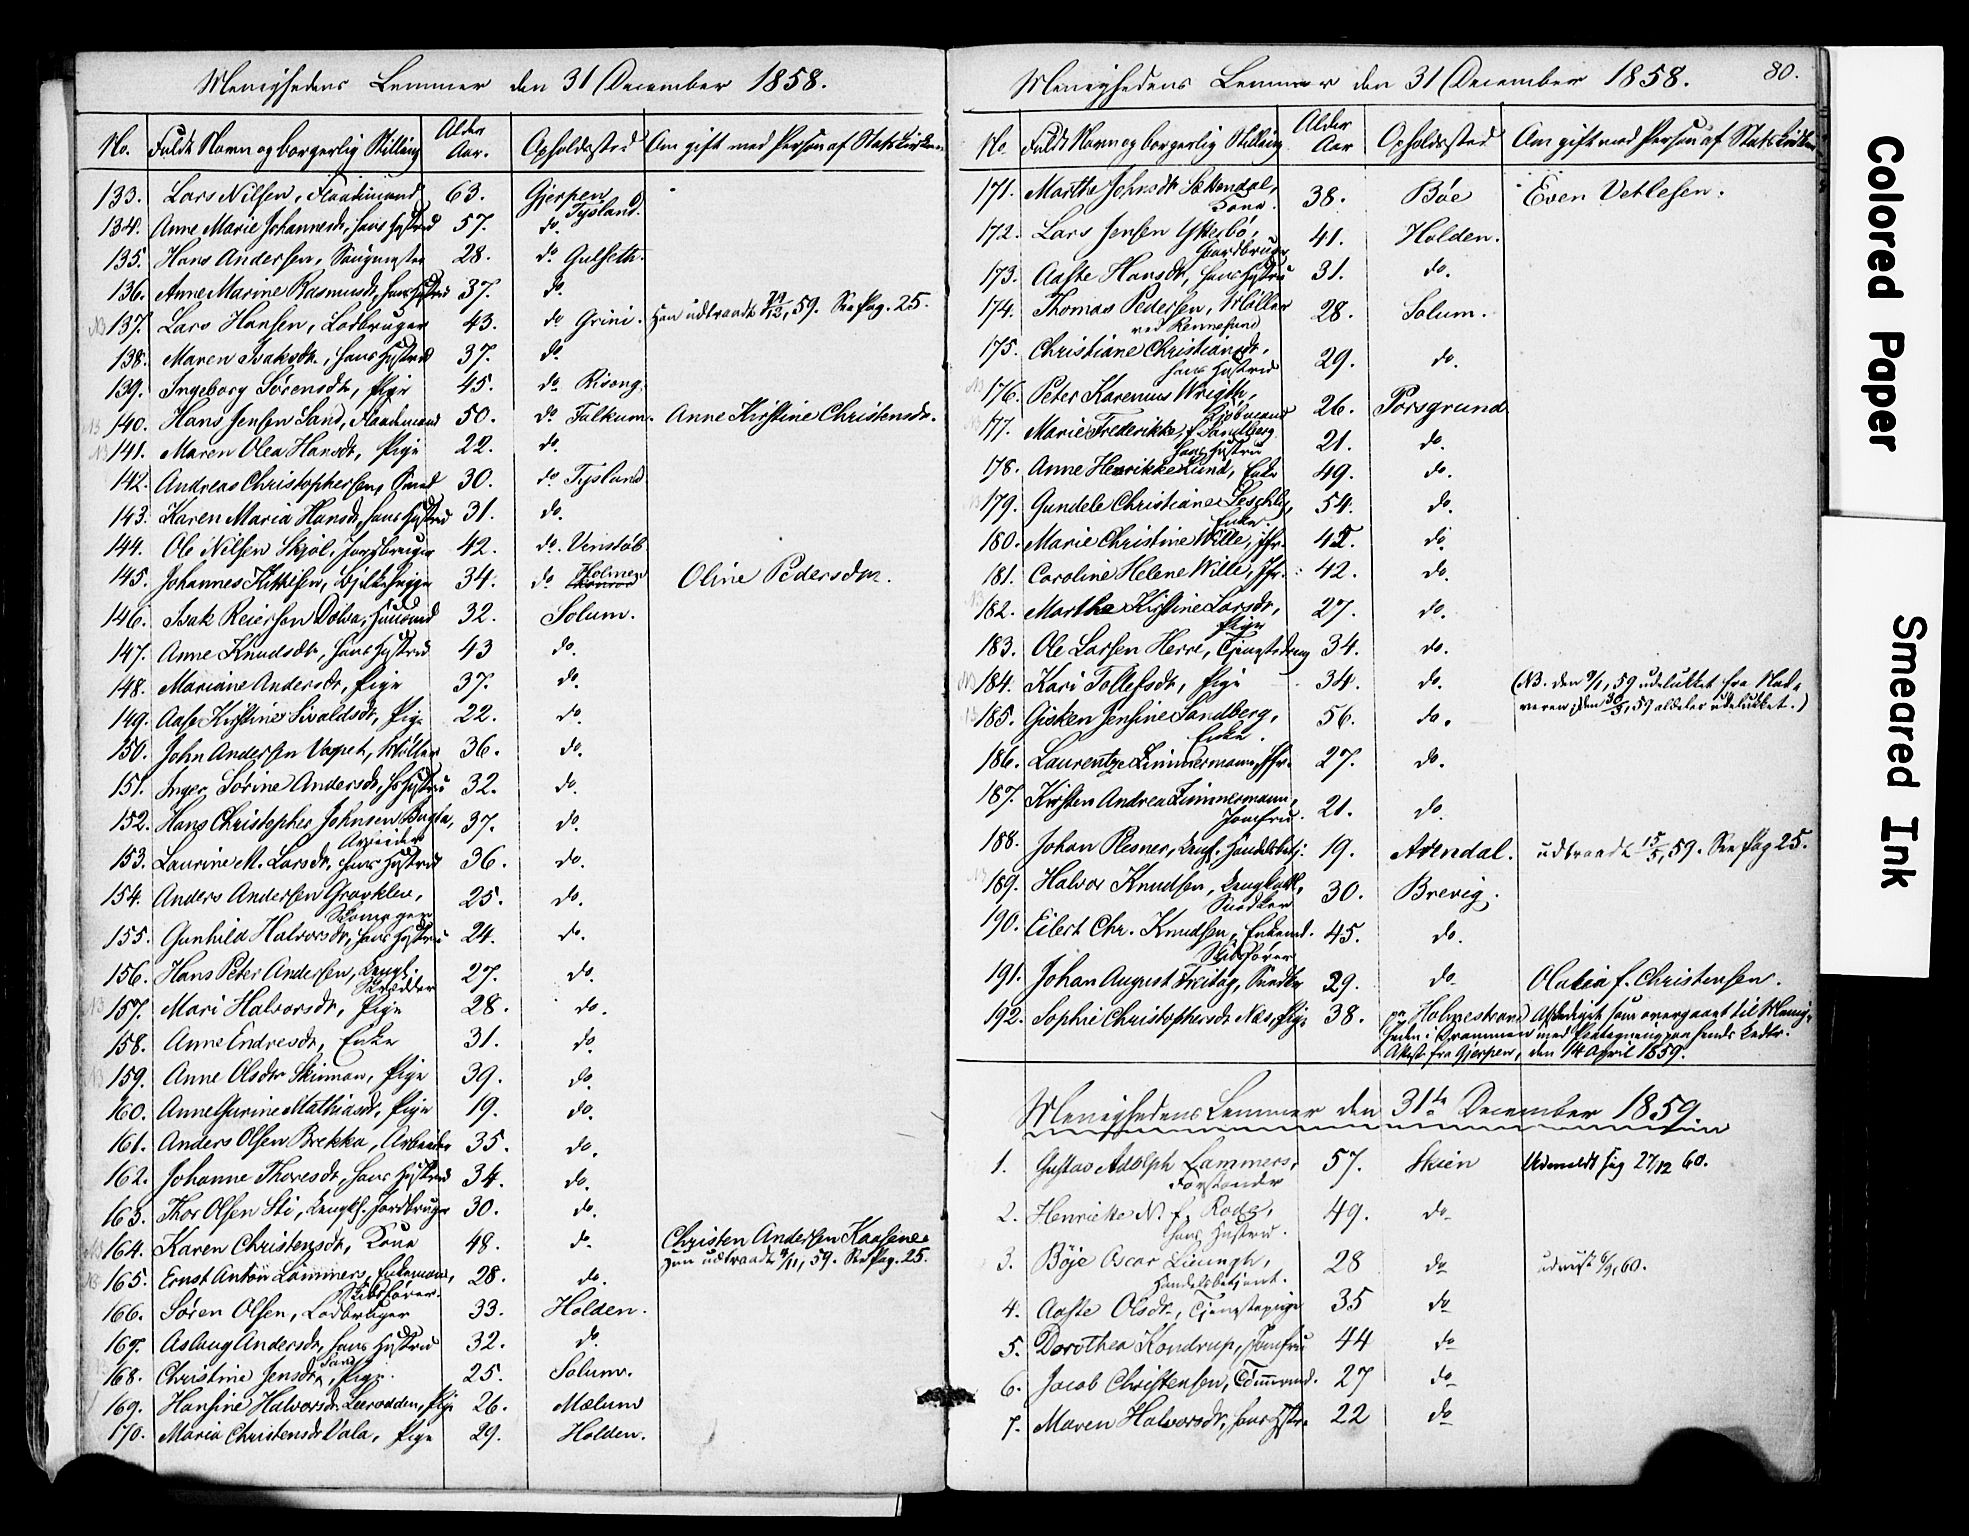 Menighedens Lemmer den 31 December 1858.
No. Fuldt Navn og borgerlig Stilling Alder Aar. Opholdssted Om gift med Person af Statskirken
133. Lars Nilsen, 63. Gjerpen
Tysland.
134. Anne Marie Johannesdr, hans Hustrud 57. do
135. Hans Andersen, Saugmester 28. do Gulseth.
136. Anne Marine Rasmusdr, hans Hustrud 37. do.
NB 137. Lars Hansen, Lodbruger 43. do Grini. Han udtraadt 12, 59. See Pag. 25.
138. Maren Isaksdr, hans Hustrud 37. do.
139. Ingeborg Sørensdr, Pige 45. do. Rising.
140. Hans Jensen Sand, 50. do Falkum. Anne Kirstine Christensdr.
NB 141. Maren Olea Hansdr, Pige 22. do.
142. Andreas Christophersen, Smed 30. do Tysland
143. Karen Maria Hansdr, hans Hustrud 31. do.
144. Ole Nilsen Skjøl, Jordbruger 42. do. Venstøb
145. Johannes Kittilsen, 34. do Holmen Oline Pedersdr.
146. Isak Reiersen Dolva, Huusmd 32. Solum.
147. Anne Knudsdr, hans Hustrud 43 do.
148. Mariane Andersdr, Pige 37. do.
149. Aase Kirstine Sivaldsdr, Pige 22. do.
150. John Andersen Vaget, Møller 36. do.
151. Inger Sørine Andersdr, hs Hustru 32. do.
152. Hans Christopher Johnsen 37. do.
Arbeider
153. Laurine M. Larsdr, hans Hustrud 36. do.
154. Anders Andersen Gravklev, 25. do.
Skomager
155. Gunhild Halvorsdr, hans Hustru 24. do.
156. Hans Peter Andersen, Ungk. 27. do.
Skrædder
NB 157. Mari Halvorsdr, Pige 28. do.
158. Anne Endresdr, Enke 31. do
159. Anne Olsdr Skinmo, Pige 39. do.
160. Anne Gurine Mathiasdr, Pige 19. do.
161. Anders Olsen Brekka, Arbeider 35. do.
162. Johanne Thoresdr, hans Hustrud 34. do.
163. Thor Olsen Sti, Ungk. Jordbruger 30. do.
NB 164. Karen Christensdr, Kone 48. do. Christen Andersen Kaasene
Hun udtraadt 9/11, 59. See Pag. 25.
NB 165. Ernst Anton Lammers, Enkemand, 28. do.
Skibsfører.
166. Søren Olsen, Lodbruger 33. Holden.
167. Aslaug Andersdr, hans Hustrud 32. do.
168. Christine Jensdr Sand, Pige. 25. Solum.
169. Hansine Halvorsdr Leerodden, Pige 26. Mælum
170. Maria Christensdr Vala, Pige 29. Holden.
80.
Menighedens Lemmer den 31 December 1858.
No Fuldt Navn og borgerlig Stilling Alder Aar Opholdssted Om gift med Person af Statskirken
171. Marthe Johnsdr Sattendal, 38. Bøe Even Vetlesen.
Kone.
172. Lars Jensen Ytterbø, 41. Holden.
Gaardbruger
173. Aaste Hansdr, hans Hustru 31. do.
174. Thomas Pedersen, Møller 28. Solum.
ved Rennesund
175. Christiane Christiansdr, 29. do.
hans Hustrud
NB 176. Peter Karenius Wrigth, 26. Porsgrund
Kjøbmand
177. Marie Frederikke f. Sandberg 21. do.
hans Hustru
178. Anne Henrikke Lund, Enke 49. do.
179. Gundele Christiane Leschly, 54. do.
Enke.
180. Marie Christine Wille, Jfr. 45. do
181. Caroline Helene Wille, Jfr. 42. do.
NB 182. Marthe Kirstine Larsdr, 27. do.
Pige
183. Ole Larsen Herre, Tjenestedreng 34. do.
NB 184. Kari Tollefsdr, Pige 34. do. (NB. den 9/1, 59 udelukket fra Nad-
185. Gisken Jensine Sandberg, 56. do. veren, den 30/3, 59 aldeles udelukket.)
Enke.
186. Laurentze Zimmermann, Jfr. 27. do.
187. Kirsten Andrea Zimmermann, 21. do.
Jomfru.
188. Johan Plesner, Ungk. Handelsbetj. 19. Arendal. udtraadt 15/5, 59. See Pag 25.
NB 189. Halvor Knudsen, Ungkarl, 30. Brevig.
Snedker
190. Eilert Chr. Knudsen, Enkemd. 45. do.
Skibsfører
191. Johan August Freitag, Snedker 29. do Olatia f. Christensen.
192. Sophie Christophersdr Næs, Pige 38. pr Holmestrand Afskediget som overgaaet til Menig-
heden i Drammen med Paategning paa hends
Attest fra Gjerpen, den 14 April 1859.
Menighedens Lemmer den 31te December 1859.
1. Gustav Adolph Lammers, 57. Skien Udmeldt sig 27/12 60.
Forstander
2. Henriette M. f. Rode, 49. do
hans Hustru.
3. Bøje Oscar Lieungh, 28 do udreist 6/9, 60.
Handelsbetjent.
4. Aaste Olsdr, Tjenestepige 35 do
5. Dorothea Kondrup, Jomfru 44 do
6. Jacob Christensen, Tømmermd. 27 do
7. Maren Halvorsdr, hans Hustr. 22 do
Colored Paper
Smeared Ink